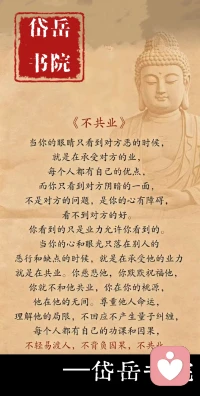 岱岳
书院
《不共业》
当你的眼睛只看到对方恶的时候,
就是在承受对方的业,
每个人都有自己的优点,
而你只看到对方阴暗的一面,
不是对方的问题,是你的心有障碍,
看不到对方的好。
你看到的只是业力允许你看到的。
当你的心和眼光只落在别人的
恶行和缺点的时候,就是在承他的业力
就是在共业。你慈悲他,你默默祝福他,
你就不和他共业,你在你的桃源,
他在他的无间。尊重他人命运,
理解他的局限,不回应不产生量子纠缠,
每个人都有自己的功课和因果,
不轻易渡人,不背负因果,不共业
—岱岳书院